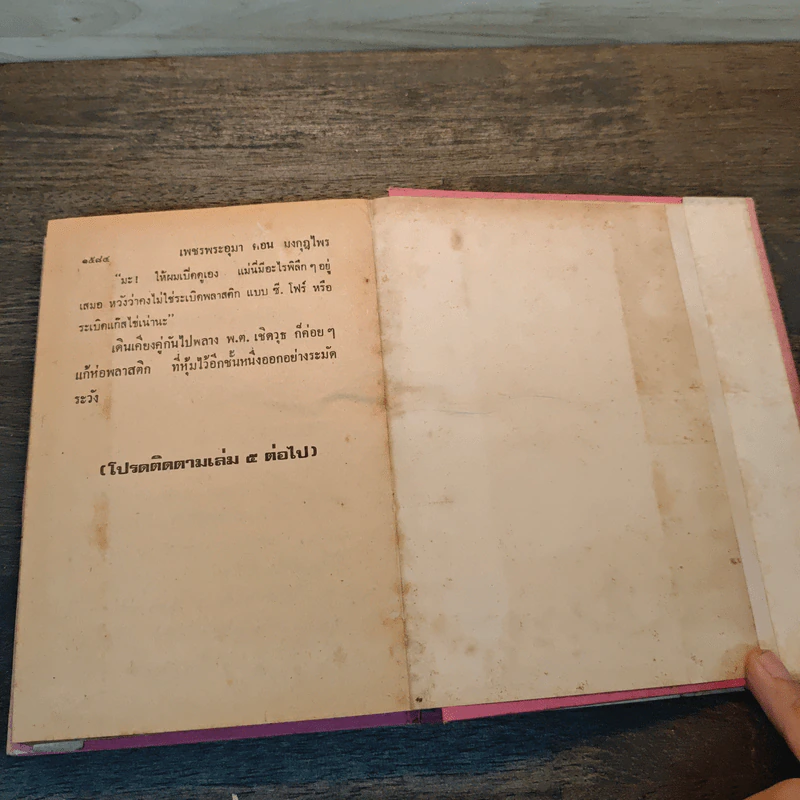 ๑๕๗๔ เพชรพระอุมา ตอน มงกุฎไพร
“มะ! ให้ผมเปิดดูเอง แม่นี่มีอะไรพิลึก ๆ อยู่
เสมอ หวังว่าคงไม่ใช่ระเบิดพลาสติก แบบ ซี. โฟร์ หรือ
ระเบิดแก๊สไข่เน่านะ”
เดินเคียงคู่กันไปพลาง พ.ต. เชิดวุธ ก็ค่อย ๆ
แก้ห่อพลาสติก ที่หุ้มไว้อีกชั้นหนึ่งออกอย่างระมัด
ระวัง
(โปรดติดตามเล่ม ๕ ต่อไป)